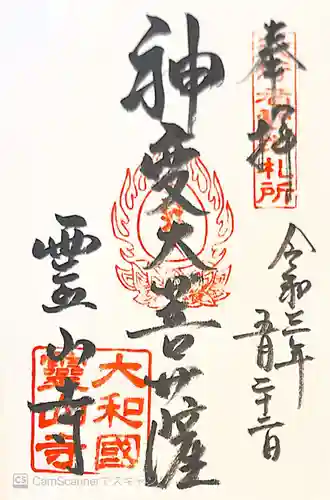 奉拝
札所
令和三年
五月二十二日
神変大菩薩
霊山寺
大和國
靈山寺
CS CamScannerでスキャ